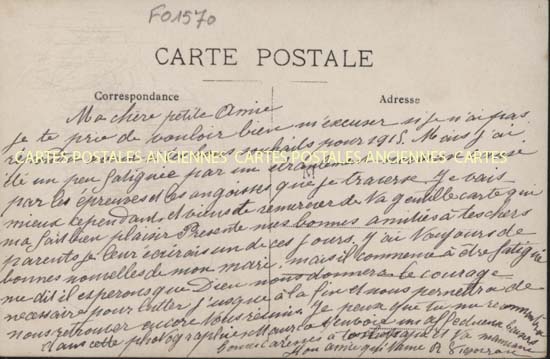 FO1570
CARTE POSTALE
Correspondance
Adresse
Ma chère petite Amie
Je te prie de vouloir bien m'excuser si je n'ai pas
souhaits pour 1915. Mais j'ai
CARTES POSTALES ANCIENNES CARTES POSTALES ANCIENNES CARTES
été un peu fatiguée par un
par les épreuves et les angoisses que je traverse. Je vais
mieux cependant et viens te remercier de ta gentille carte qui
m'a fait bien plaisir Présente mes bonnes amitiés à tes chers
parents je leur écrirais un de ces jours. J'ai toujours de
bonnes nouvelles de mon mari, mais il commence à être fatigué
me dit il espérons que Dieu nous donnera le courage
nécessaire pour lutter jusque à la fin et nous permettra de
nous retrouver encore tous réunis. Je peux que tu me
dans cette photographie Maurice t'envoie un affectueux
bonnes caresses à ta maman
Ton amie qui t'aime